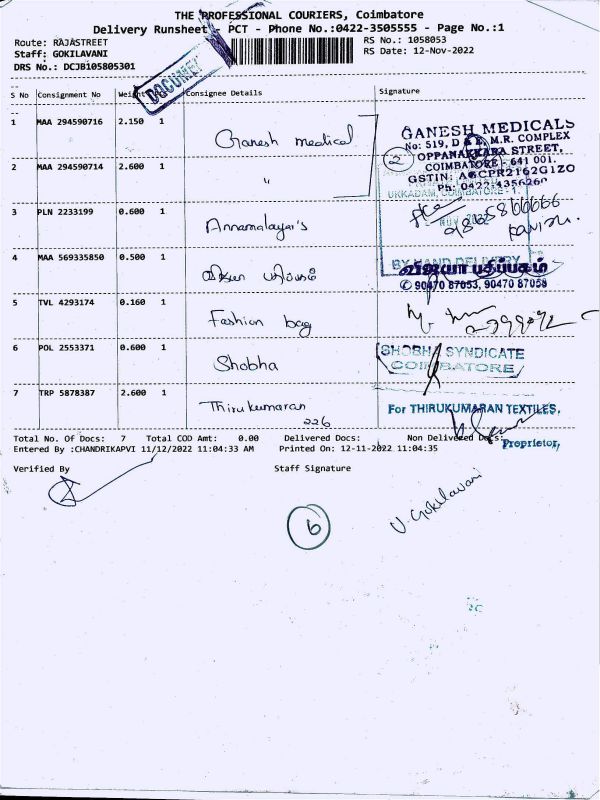 THE PROFESSIONAL COURIERS, Coimbatore
Delivery Runsheet - PCT - Phone No.:0422-3505555 - Page No.:1
Route: RAJASTREET
Staff: GOKILAVANI
DRS No.: DCJB105805301
RS No.: 1058053
RS Date: 12-Nov-2022
DOCUMENT
S No Consignment No Weight Consignee Details Signature
1 MAA 294590716 2.150 1 Ganesh medical
GANESH MEDICALS
No: 519, D M.R. COMPLEX
OPPANAKKARA STREET,
COIMBATORE - 641 001.
GSTIN: AGCPR2162G1ZO
Ph: 0422-4356260
2
2 MAA 294590714 2.600 1 "
UKKADAM, COIMBATORE - 1.
3 PLN 2233199 0.600 1 Annamalayar's
NOV 2022
4 MAA 569335850 0.500 1 விஜயா பதிப்பகம்
BY HAND DELIVERY
விஜயா பதிப்பகம்
✆ 90470 87053, 90470 87058
5 TVL 4293174 0.160 1 Fashion bag
6 POL 2553371 0.600 1 Shobha
SHOBHA SYNDICATE
COIMBATORE
7 TRP 5878387 2.600 1 Thirukumaran
226
For THIRUKUMARAN TEXTILES,
Proprietor,
Total No. Of Docs: 7 Total COD Amt: 0.00 Delivered Docs: Non Delivered Docs:
Entered By :CHANDRIKAPVI 11/12/2022 11:04:33 AM Printed On: 12-11-2022 11:04:35
Verified By Staff Signature
V. Gokilavani
6